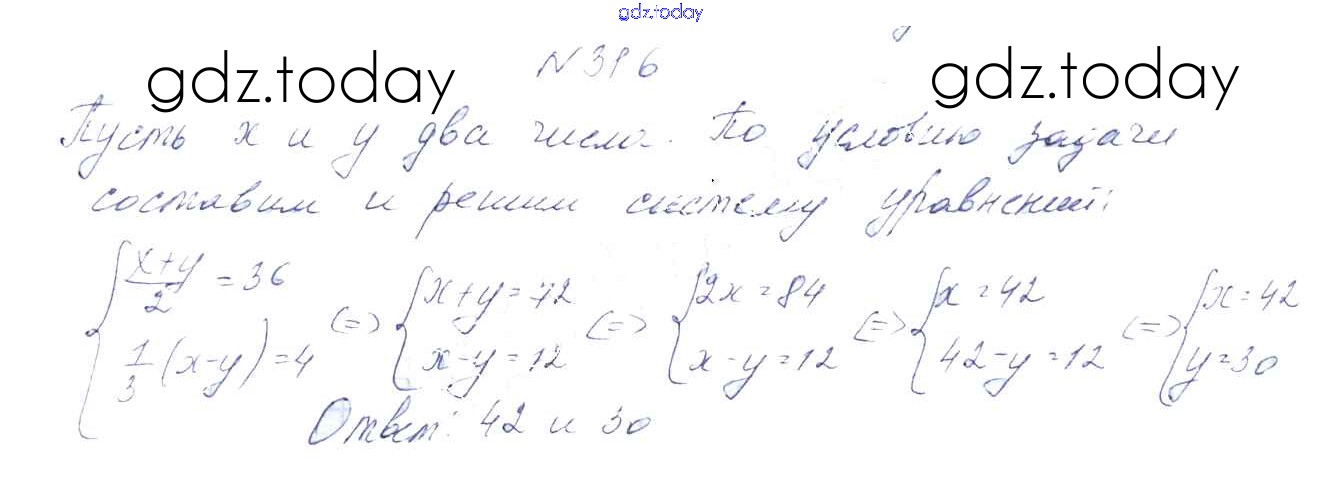 gdz.today
№ 396
gdz.today gdz.today
Пусть x и y два числа. По условию задачи
составим и решим систему уравнений:
{ (x+y)/2 = 36; 1/3 (x-y) = 4 (=) { x+y = 72; x-y = 12 (=) { 2x = 84; x-y = 12 (=) { x = 42; 42-y = 12 (=) { x = 42; y = 30
Ответ: 42 и 30